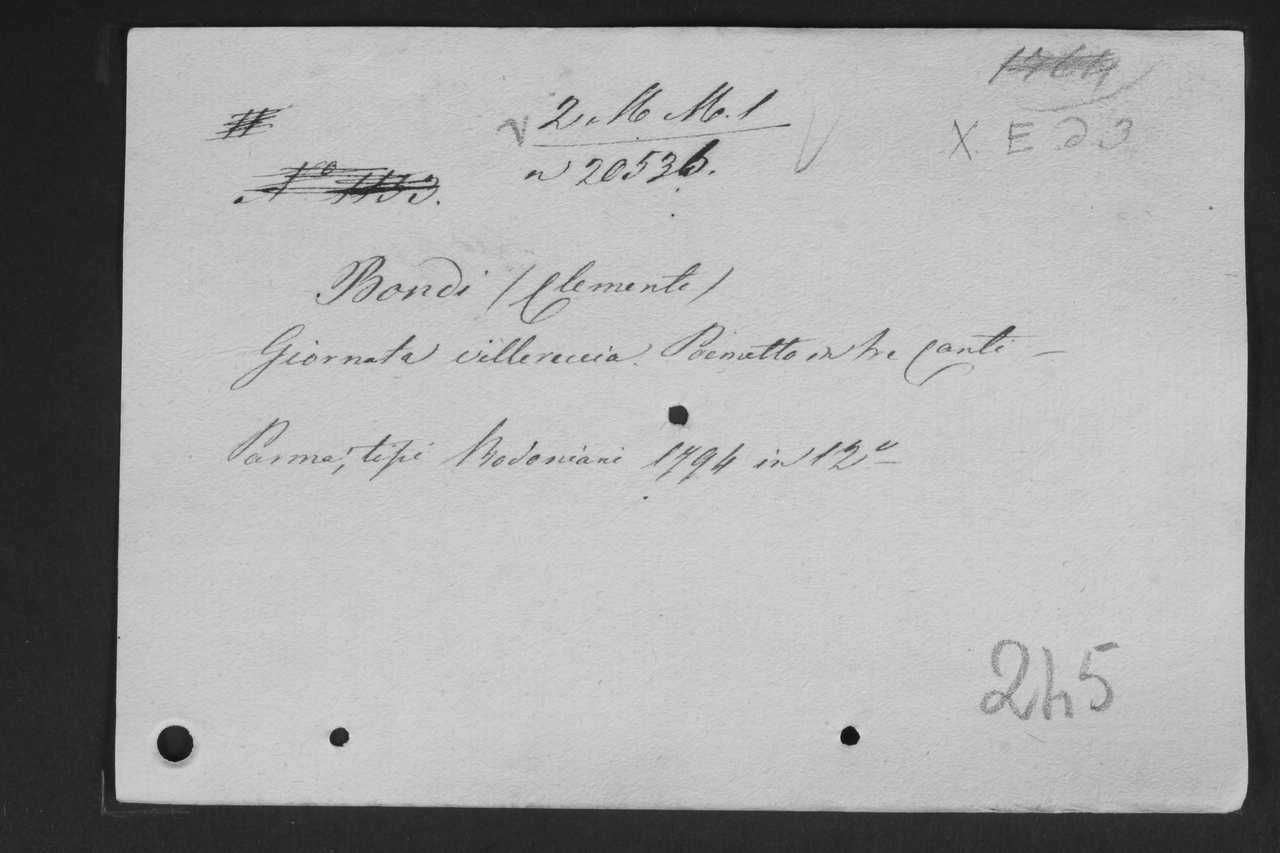 2 M M. 1
n 20536.
X. E. d. 3
N.o 1133.
Bondi (Clemente)
Giornata villereccia. Poemetto in tre canti –
Parma, tipi Bodoniani 1794 in 12º
245